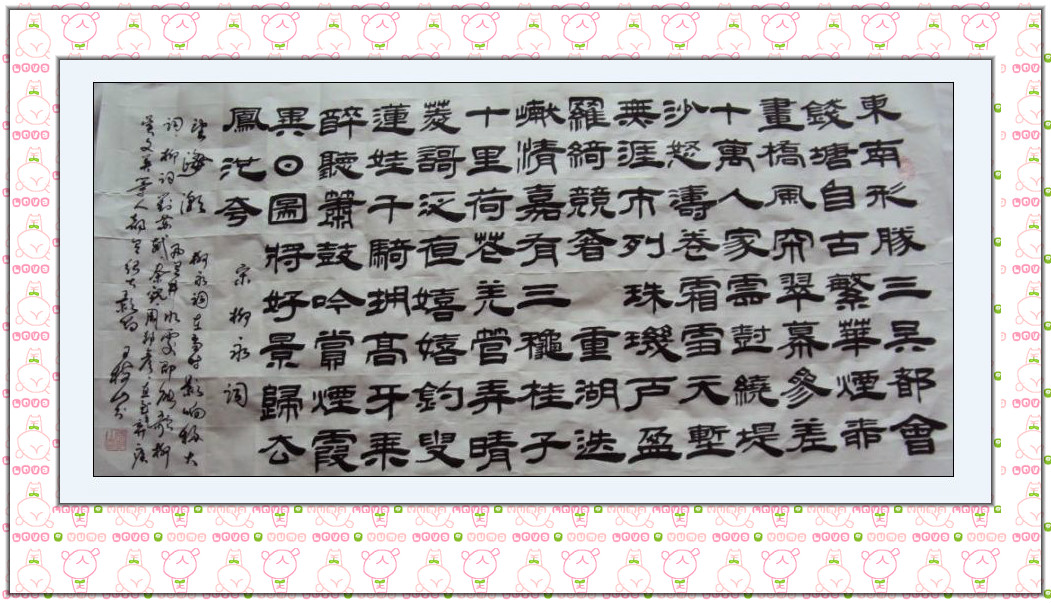 東南形勝三吴都會
錢塘自古繁華煙柳
畫橋風帘翠幕參差
十萬人家雲尌繞堤
沙怒濤卷霜雪天塹
無涯市列珠璣户盈
羅綺競奢 重湖迭
巘清嘉有三穐桂子
十里荷花羌管弄晴
菱謌泛亱嬉嬉釣叟
蓮娃千騎拥高牙乘
醉聽簫鼓吟賞煙霞
異日圖將好景歸去
鳳池夸
宋柳永詞
望海潮 柳永詞在當時影响极大
Love